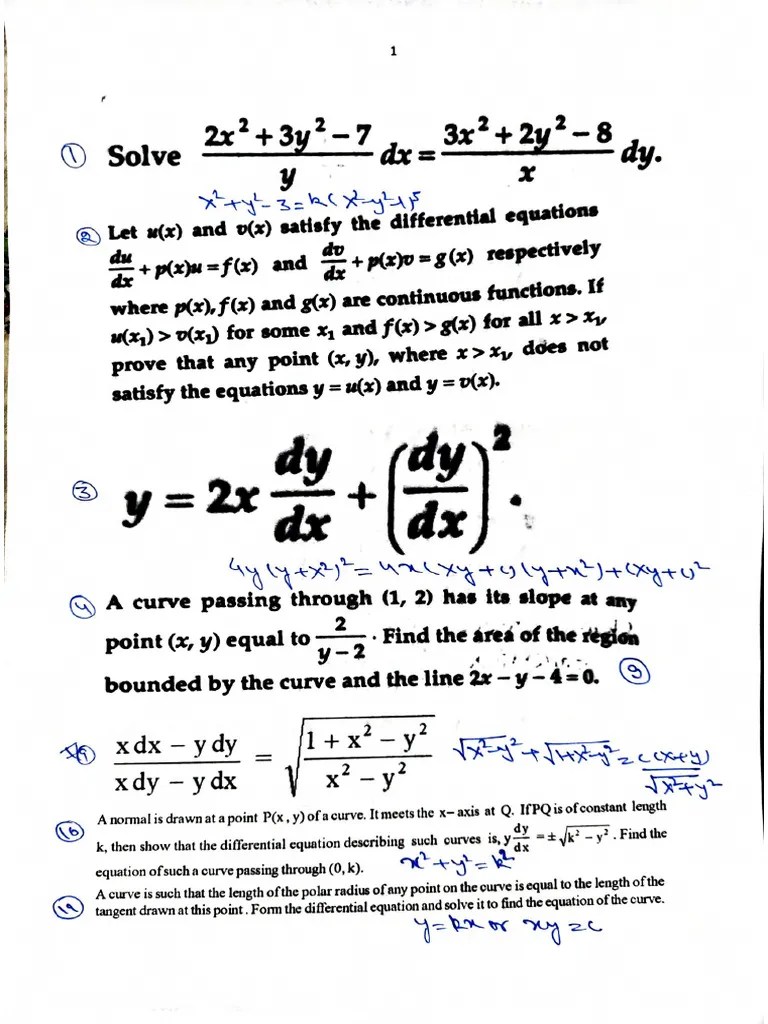 1
① Solve (2x² + 3y² − 7)/y dx = (3x² + 2y² − 8)/x dy.
x²+y²−3 = k(x²−y²−1)⁵
② Let u(x) and v(x) satisfy the differential equations
du/dx + p(x)u = f(x) and dv/dx + p(x)v = g(x) respectively
where p(x), f(x) and g(x) are continuous functions. If
u(x₁) > v(x₁) for some x₁ and f(x) > g(x) for all x > x₁,
prove that any point (x, y), where x > x₁, does not
satisfy the equations y = u(x) and y = v(x).
③ y = 2x dy/dx + (dy/dx)².
4y(y+x²)² = 4x(xy+c)(y+x²)+(xy+c)²
④ A curve passing through (1, 2) has its slope at any
point (x, y) equal to 2/(y−2). Find the area of the region
bounded by the curve and the line 2x − y − 4 = 0. ⑨
(x dx − y dy)/(x dy − y dx) = √((1 + x² − y²)/(x² − y²)) √x²−y² + √1+x²−y² = c(x+y)/√x²+y²
A normal is drawn at a point P(x, y) of a curve. It meets the x–axis at Q. If PQ is of constant length
⑯ k, then show that the differential equation describing such curves is, y dy/dx = ± √(k² − y²). Find the
equation of such a curve passing through (0, k). x²+y²=k²
A curve is such that the length of the polar radius of any point on the curve is equal to the length of the
tangent drawn at this point. Form the differential equation and solve it to find the equation of the curve.
y=kx or xy=c